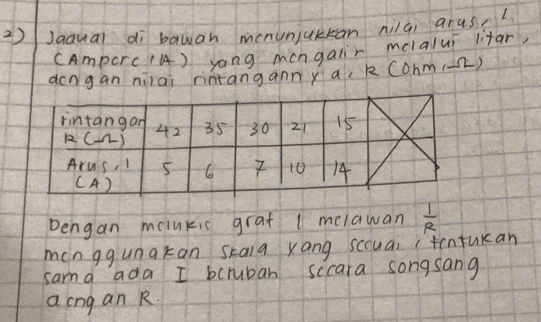 2) Jadual di bawah menunjukkan nilai arus, I
(Ampere (A) yang mengalir melalui litar,
dengan nilai rintangannya, R (Ohm, Ω)
rintangan R (Ω) 42 35 30 21 15
Arus, I (A) 5 6 7 10 14
Dengan melukis graf I melawan 1/R
menggunakan skala yang sesuai, tentukan
sama ada I berubah secara songsang
dengan R.